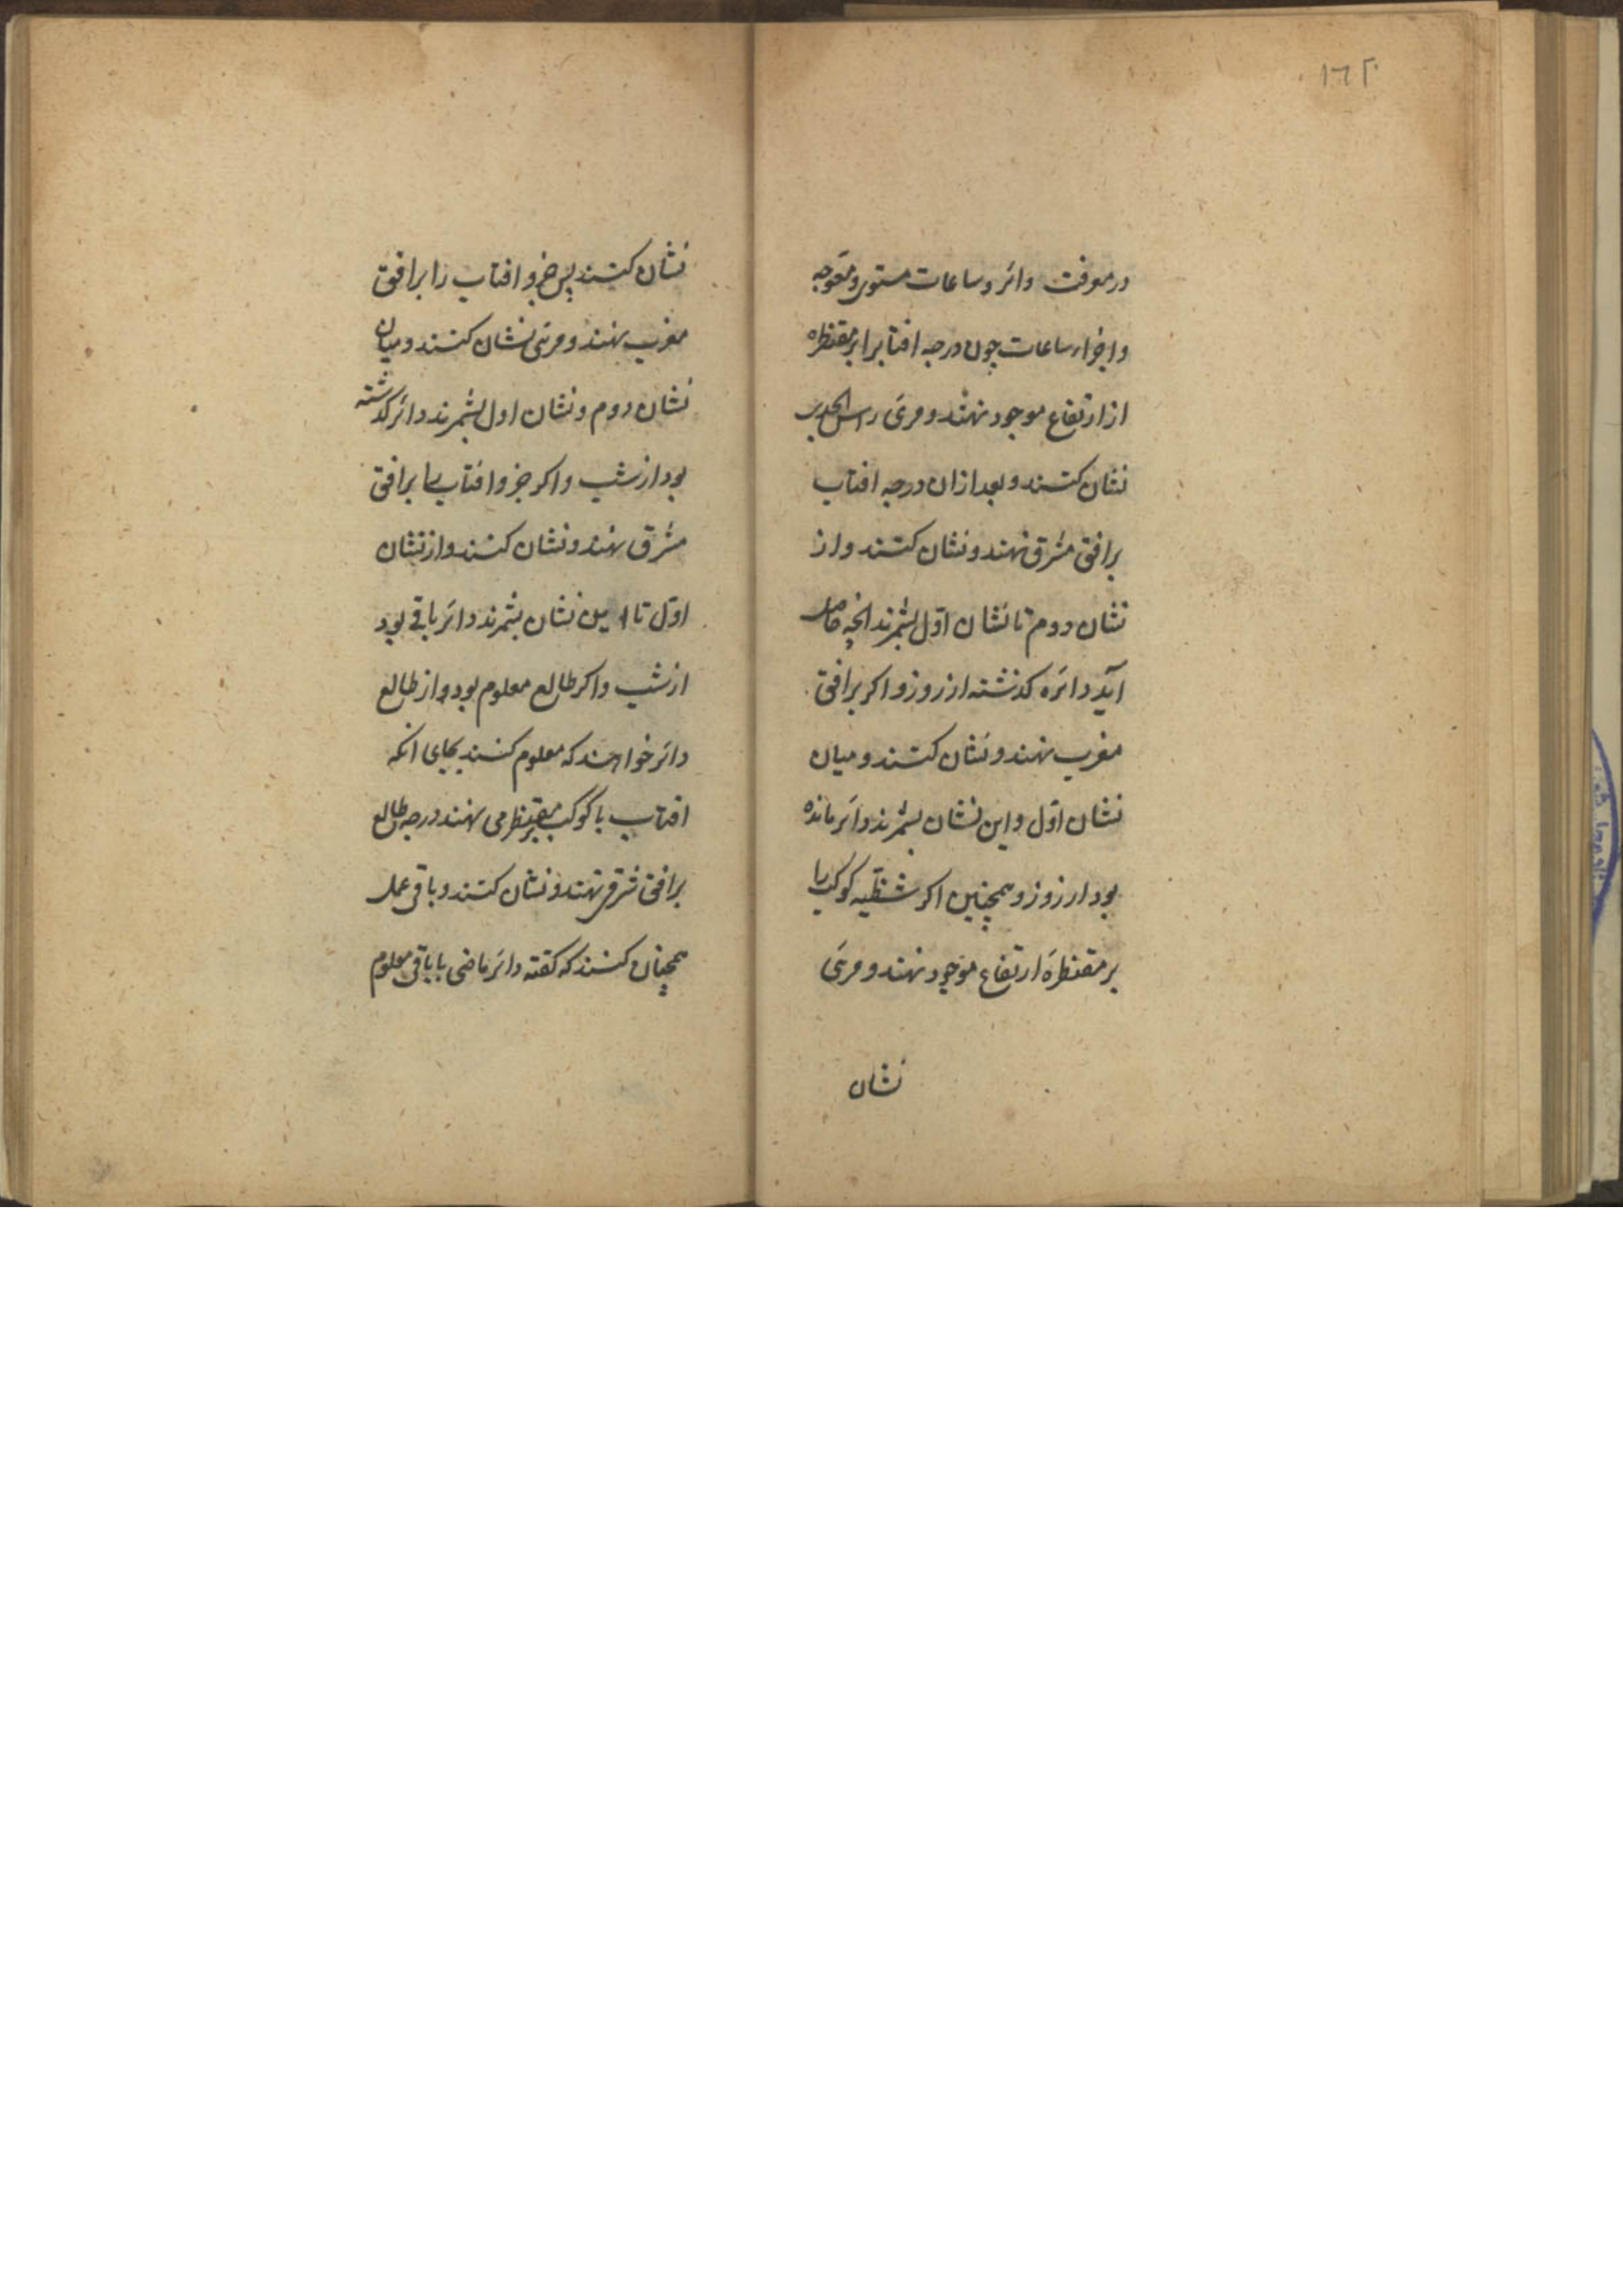 در معرفت دائر و ساعات مستوی و معوجه
و اجزاء ساعات چون درجه افتابرا بر مقنطره
از ارتفاع موجود نهند و مرئ راس الجدیر
نشان کنند و بعد ازان درجه افتاب
بر افق مشرق نهند و نشان کنند و از
نشان دوم تا نشان اول بشمرند انچه حاصل
آید دائره کذشته از روز و اکر بر افق
مغرب نهند و نشان کنند و میان
نشان اوّل و این نشان بشمرند دائر مانده
بود از روز و همچنین اکر شظیه کوکب را
بر مقنطره ارتفاع موجود نهند و مرئ
نشان
نشان کنند پس جزو افتاب را بر افق
مغرب نهند و مرئ نشان کنند و میان
نشان دوم و نشان اول بشمرند دائر کذشته
بود از شب و اکر جزو افتاب را بر افق
مشرق نهند و نشان کنند و از نشان
اوّل تا این نشان بشمرند دائر باقی بود
از شب و اکر طالع معلوم بود و از طالع
دائر خواهند که معلوم کنند بجای انکه
افتاب یا کوکب بر مقنطره می نهند درجه طالع
بر افق شرقی نهند و نشان کنند و باقی عمل
همچنان کنند که کفته دائر ماضی یا باقی معلوم